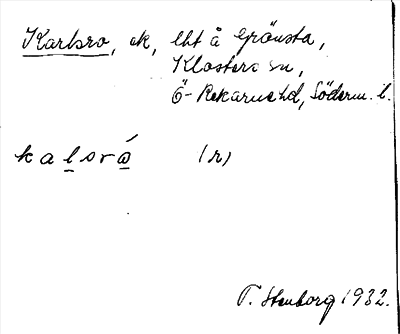 Karlsro, ek, lht å Grönsta,
Klosters sn,
Ö-Rekarne hd, Söderm. l.
kalsrò (r)
T. Stenborg 1932.